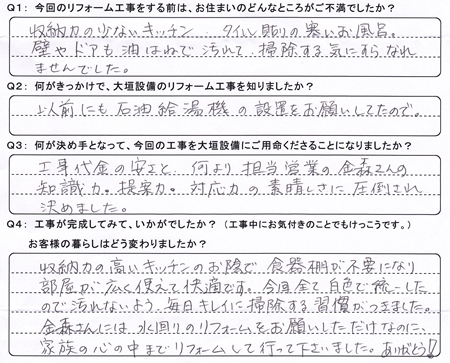 Q1: 今回のリフォーム工事をする前は、お住まいのどんなところがご不満でしたか?
収納力の少ないキッチン タイル貼りの寒いお風呂。
壁やドアも油はねで汚れて、掃除する気にすらなれ
ませんでした。
Q2: 何がきっかけで、大垣設備のリフォーム工事を知りましたか?
以前にも石油給湯機の設置をお願いしてたので。
Q3: 何が決め手となって、今回の工事を大垣設備にご用命くださることになりましたか?
工事代金の安さと、何より担当営業の金森さんの
知識力。提案力。対応力の素晴しさに圧倒され
決めました。
Q4: 工事が完成してみて、いかがでしたか? (工事中にお気付きのことでもけっこうです。)
お客様の暮らしはどう変わりましたか?
収納力の高いキッチンのお陰で、食器棚が不要になり
部屋が広く使えて快適です。今回全て白色で統一した
ので汚れないよう、毎日キレイに掃除する習慣がつきました。
金森さんには、水回りのリフォームをお願いしただけなのに、
家族の心の中までリフォームして行って下さいました。ありがとう!